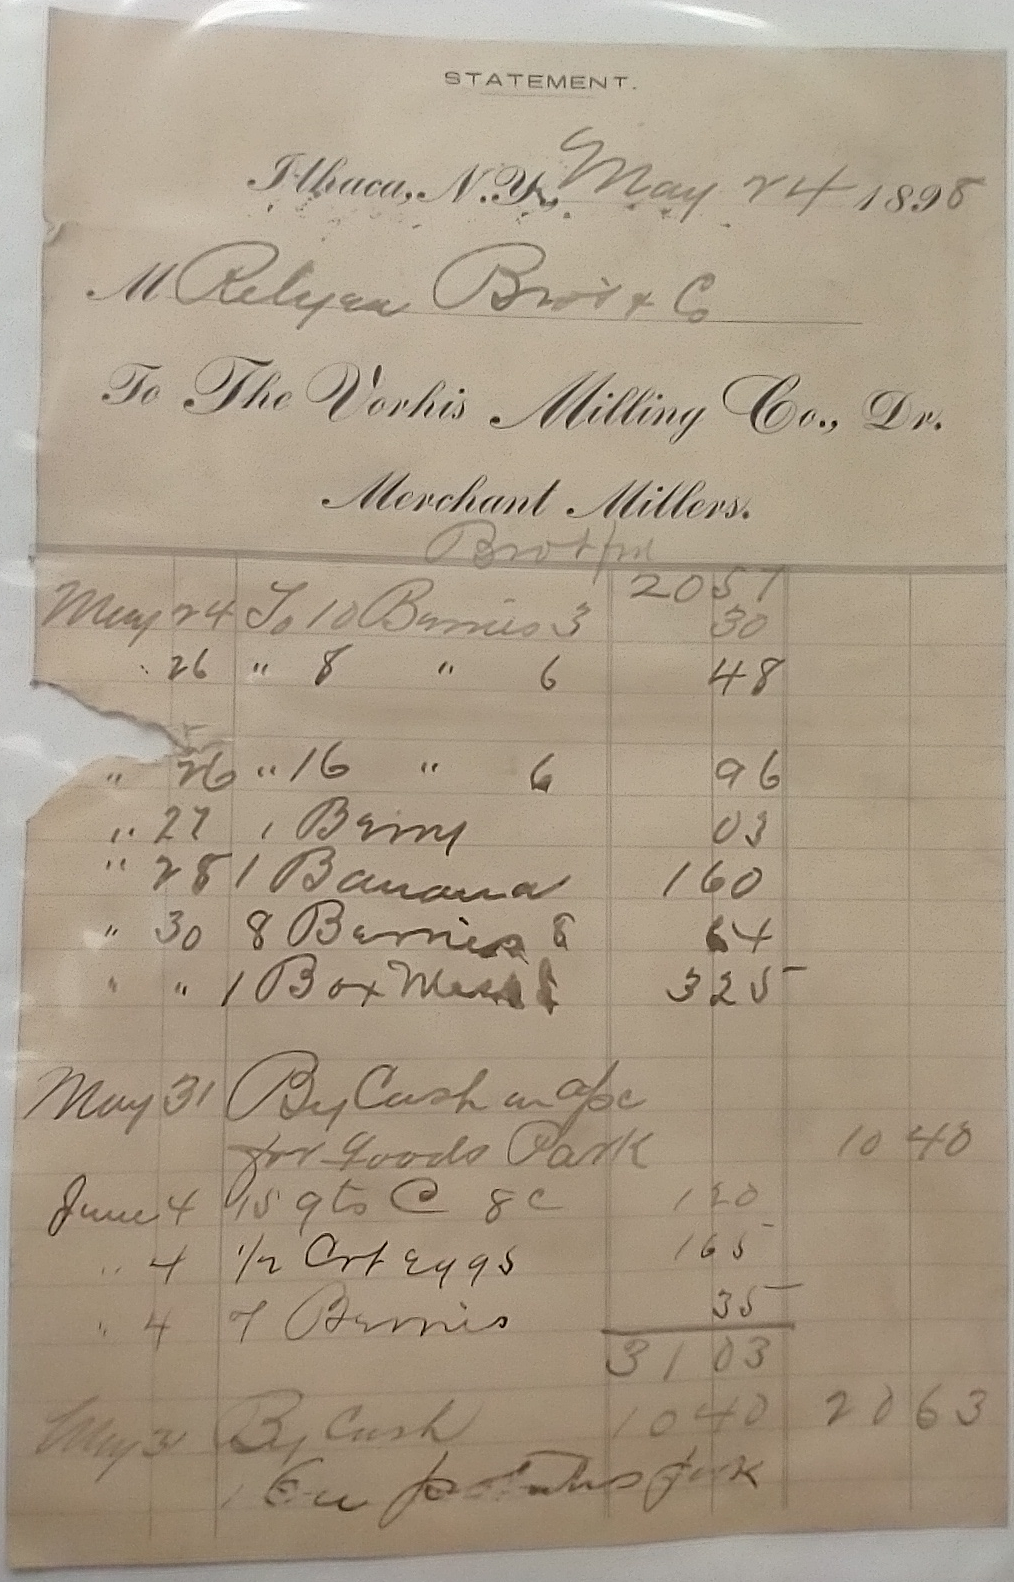 STATEMENT.
Ithaca, N.Y., May 24 1898
M Relyea Bro's & Co
To The Vorhis Milling Co., Dr.
Merchant Millers.
Brot frd 20 57
May 24 To 10 Berries 3 30
26 " 8 " 6 48
" 26 " 16 " 6 96
" 27 1 Berry 03
" 28 1 Banana 1 60
" 30 8 Berries 8 64
" " 1 Box 3 25
May 31 By Cash on a/c
for Goods Park 10 40
June 4 15 qts C 8c 1 20
" 4 1/2 Crt Eggs 1 65
" 4 7 Berries 35
31 03
May 31 By Cash 10 40 20 63
1